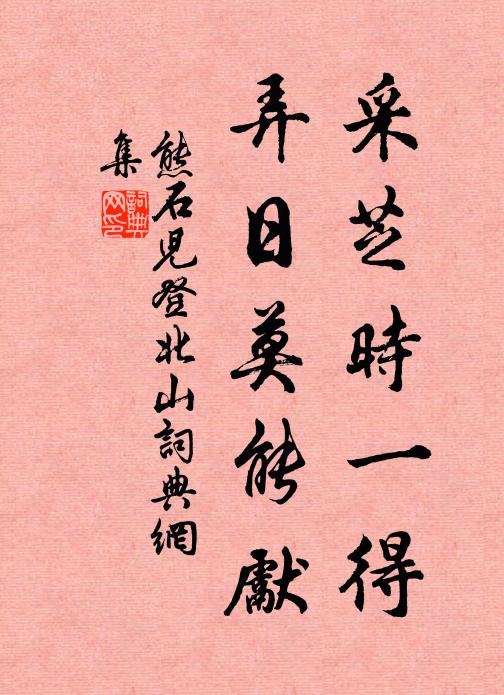 采芝時一得
弄日莫能獻
熊石兒登北山詞典網
集
詞典
网印